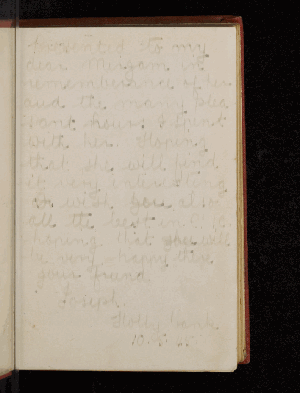 Presented to my
dear Miryam in
rememberance of her
and the many plea
sant hours I spent
with her. Hoping
that she will find
it very interesting
wish you also
all the best
hoping that she will
be very happy there
your friend
Joseph.
Holly bank